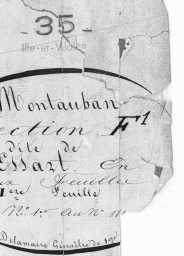 - 35 -
Ille-et-Vilaine
Montauban
ection F¹
dite de
Essart En
Feuilles
1ère Feuille
Nº 1er Au Nº
Delamaire Géomètre de 1re